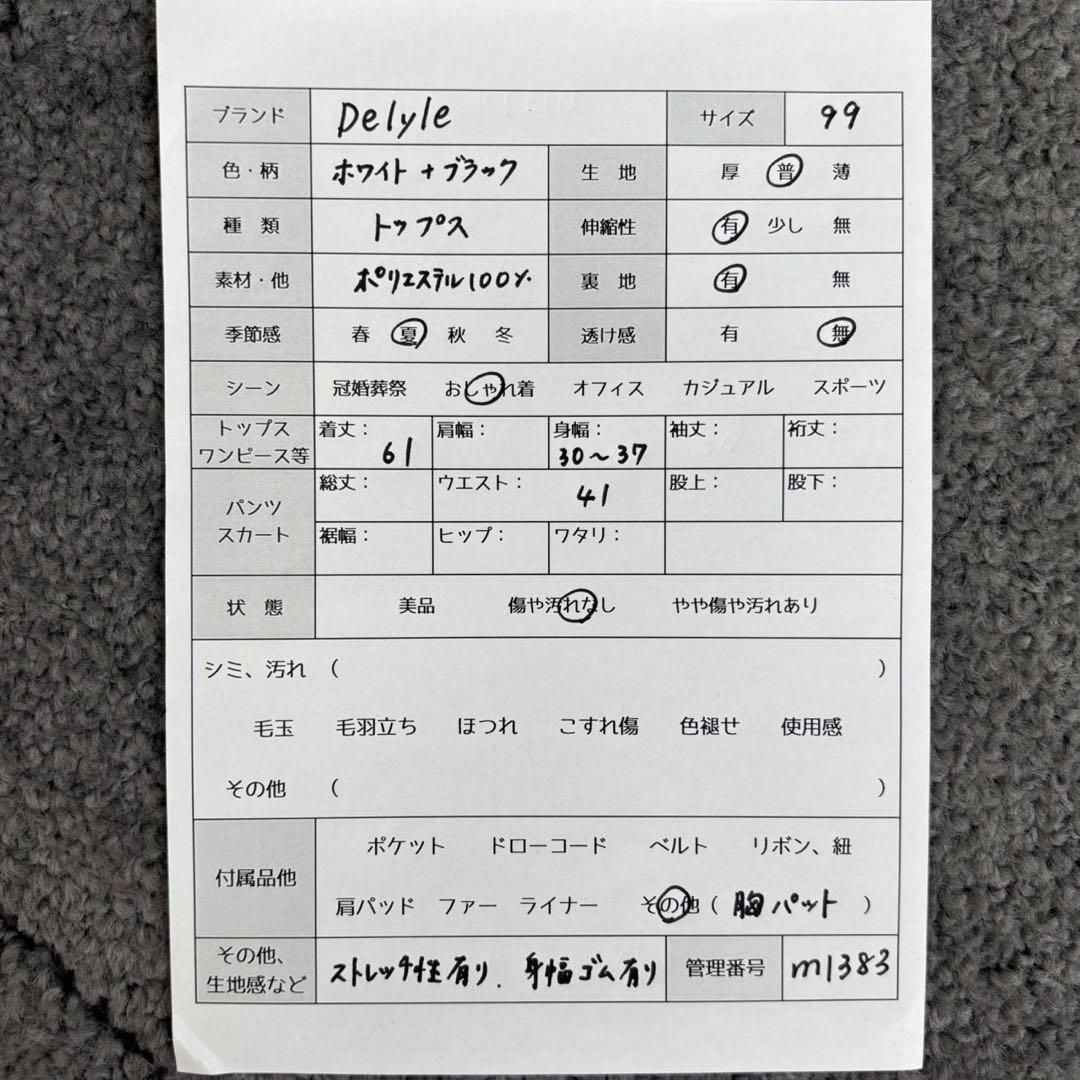 ブランド Delyle サイズ 99
色・柄 ホワイト + ブラック 生 地 厚 普 薄
種 類 トップス 伸縮性 有 少し 無
素材・他 ポリエステル100% 裏 地 有 無
季節感 春 夏 秋 冬 透け感 有 無
シーン 冠婚葬祭 おしゃれ着 オフィス カジュアル スポーツ
トップス
ワンピース等 着丈: 61 肩幅: 身幅: 30〜37 袖丈: 裄丈:
パンツ
スカート 総丈: ウエスト: 41 股上: 股下:
裾幅: ヒップ: ワタリ:
状 態 美品 傷や汚れなし やや傷や汚れあり
シミ、汚れ ( )
毛玉 毛羽立ち ほつれ こすれ傷 色褪せ 使用感
その他 ( )
付属品他 ポケット ドローコード ベルト リボン、紐
肩パッド ファー ライナー その他 ( 胸パット )
その他、
生地感など ストレッチ性有り. 身幅ゴム有り 管理番号 m1383